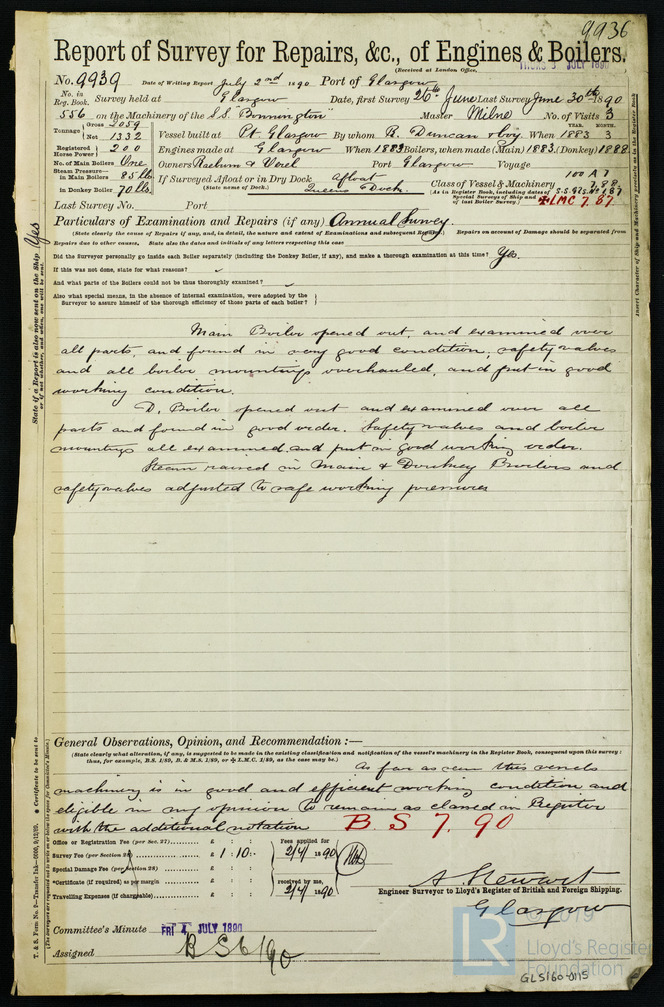 9936
Report of Survey for Repairs, &c., of Engines & Boilers.
(Received at London Office, THURS 3 JULY 1890
No. 9939 Date of Writing Report July 2nd 1890 Port of Glasgow
No. in Reg. Book. Survey held at Glasgow Date, first Survey 26th June Last Survey June 30th 1890
556 on the Machinery of the S.S. "Bonnington" Master Milne No. of Visits 3
Tonnage Gross 2059 Net 1332
Vessel built at Pt. Glasgow By whom R. Duncan & Coy. When YEAR. 1883 MONTH. 3
Registered Horse Power 200 Engines made at Glasgow When 1883 Boilers, when made (Main) 1883 (Donkey) 1888
No. of Main Boilers One Owners Raeburn & Verel Port Glasgow Voyage
Steam Pressure— in Main Boilers 85 lbs If Surveyed Afloat or in Dry Dock Afloat
in Donkey Boiler 70 lbs. (State name of Dock.) Queens Dock.
Class of Vessel & Machinery 100 A 1
(As in Register Book, including dates of Special Surveys of Ship and of last Boiler Survey.)
✠ LMC 7.87
Last Survey No. Port
Particulars of Examination and Repairs (if any) Annual Survey.
(State clearly the cause of Repairs if any, and, in detail, the nature and extent of Examinations and subsequent Repairs.) Repairs on account of Damage should be separated from
Repairs due to other causes. State also the dates and initials of any letters respecting this case
Did the Surveyor personally go inside each Boiler separately (including the Donkey Boiler, if any), and make a thorough examination at this time? Yes.
If this was not done, state for what reasons?
And what parts of the Boilers could not be thus thoroughly examined?
Also what special means, in the absence of internal examination, were adopted by the
Surveyor to assure himself of the thorough efficiency of those parts of each boiler?
Main Boiler opened out, and examined over
all parts, and found in very good condition, safety valves
and all boiler mountings overhauled, and put in good
working condition.
D. Boiler opened out and examined over all
parts and found in good order. Safety valves and boiler
mountings all examined and put in good working order.
Steam raised in Main & Donkey Boilers and
safety valves adjusted to safe working pressures
General Observations, Opinion, and Recommendation :—
(State clearly what alteration, if any, is suggested to be made in the existing classification and notification of the vessel's machinery in the Register Book, consequent upon this survey :
thus, for example, B.S. 1/89, B. & M.S. 1/89, or ✠ L.M.C. 1/89, as the case may be.)
As far as seen this vessels
machinery is in good and efficient working condition and
eligible in my opinion to remain as classed in Register
with the additional notation B S 7. 90
Office or Registration Fee (per Sec. 27) £ : :
Survey Fee (per Section 28) £ 1 : 10 : -
Special Damage Fee (per Section 28) £ : :
*Certificate (if required) as per margin £ : :
Travelling Expenses (if chargeable) £ : :
Fees applied for
2/4 1890
received by me,
2/4 1890
A Stewart
Engineer Surveyor to Lloyd's Register of British and Foreign Shipping.
Glasgow
Committee's Minute FRI 4 JULY 1890
Assigned B S 6/90
State if a Report is also now sent on the Ship Yes
or if not, whether, and when, one will be sent
Insert Character of Ship and Machinery precisely as in the Register Book
* Certificate to be sent to
(The Surveyors are requested not to write on or below the space for Committee's Minute.)
T. & S. Form No. 9—Transfer Ink—6000, 9/12/89.
LR © 2019
Lloyd's Register
Foundation
GLS160-0115